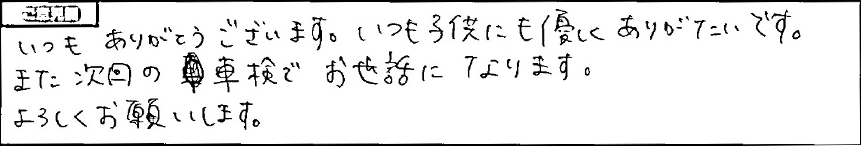 いつも ありがとうございます。いつも子供にも優しく ありがたいです。
また次回の 車検で お世話に なります。
よろしくお願いします。